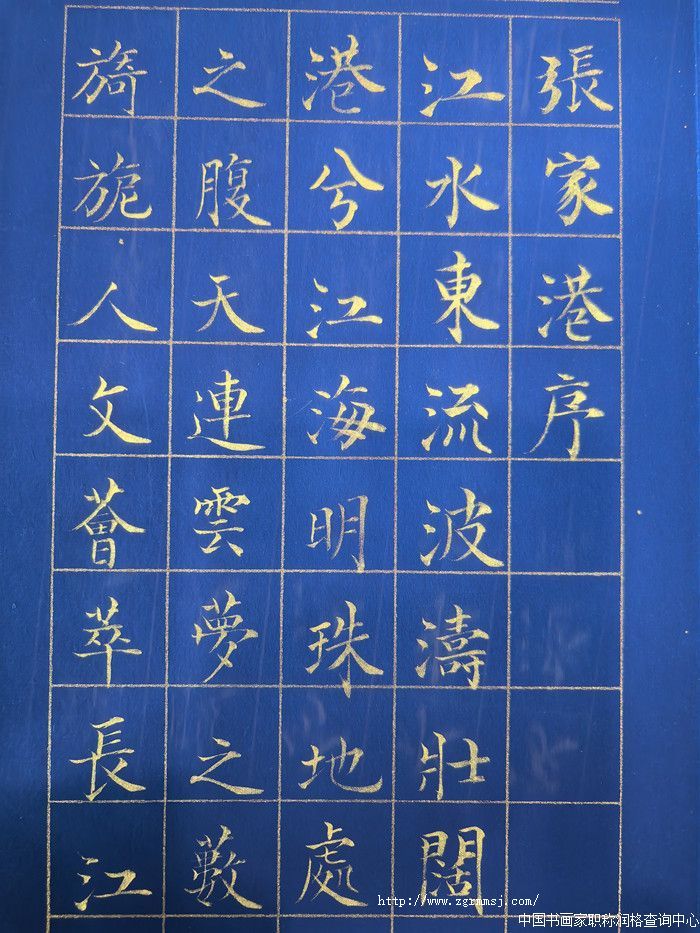 張家港序
江水東流波濤壯闊
港兮江海明珠地處
之腹天連雲夢之藪
旖旎人文薈萃長江
http://www.zgrmmsj.com/
中国书画家职称润格查询中心